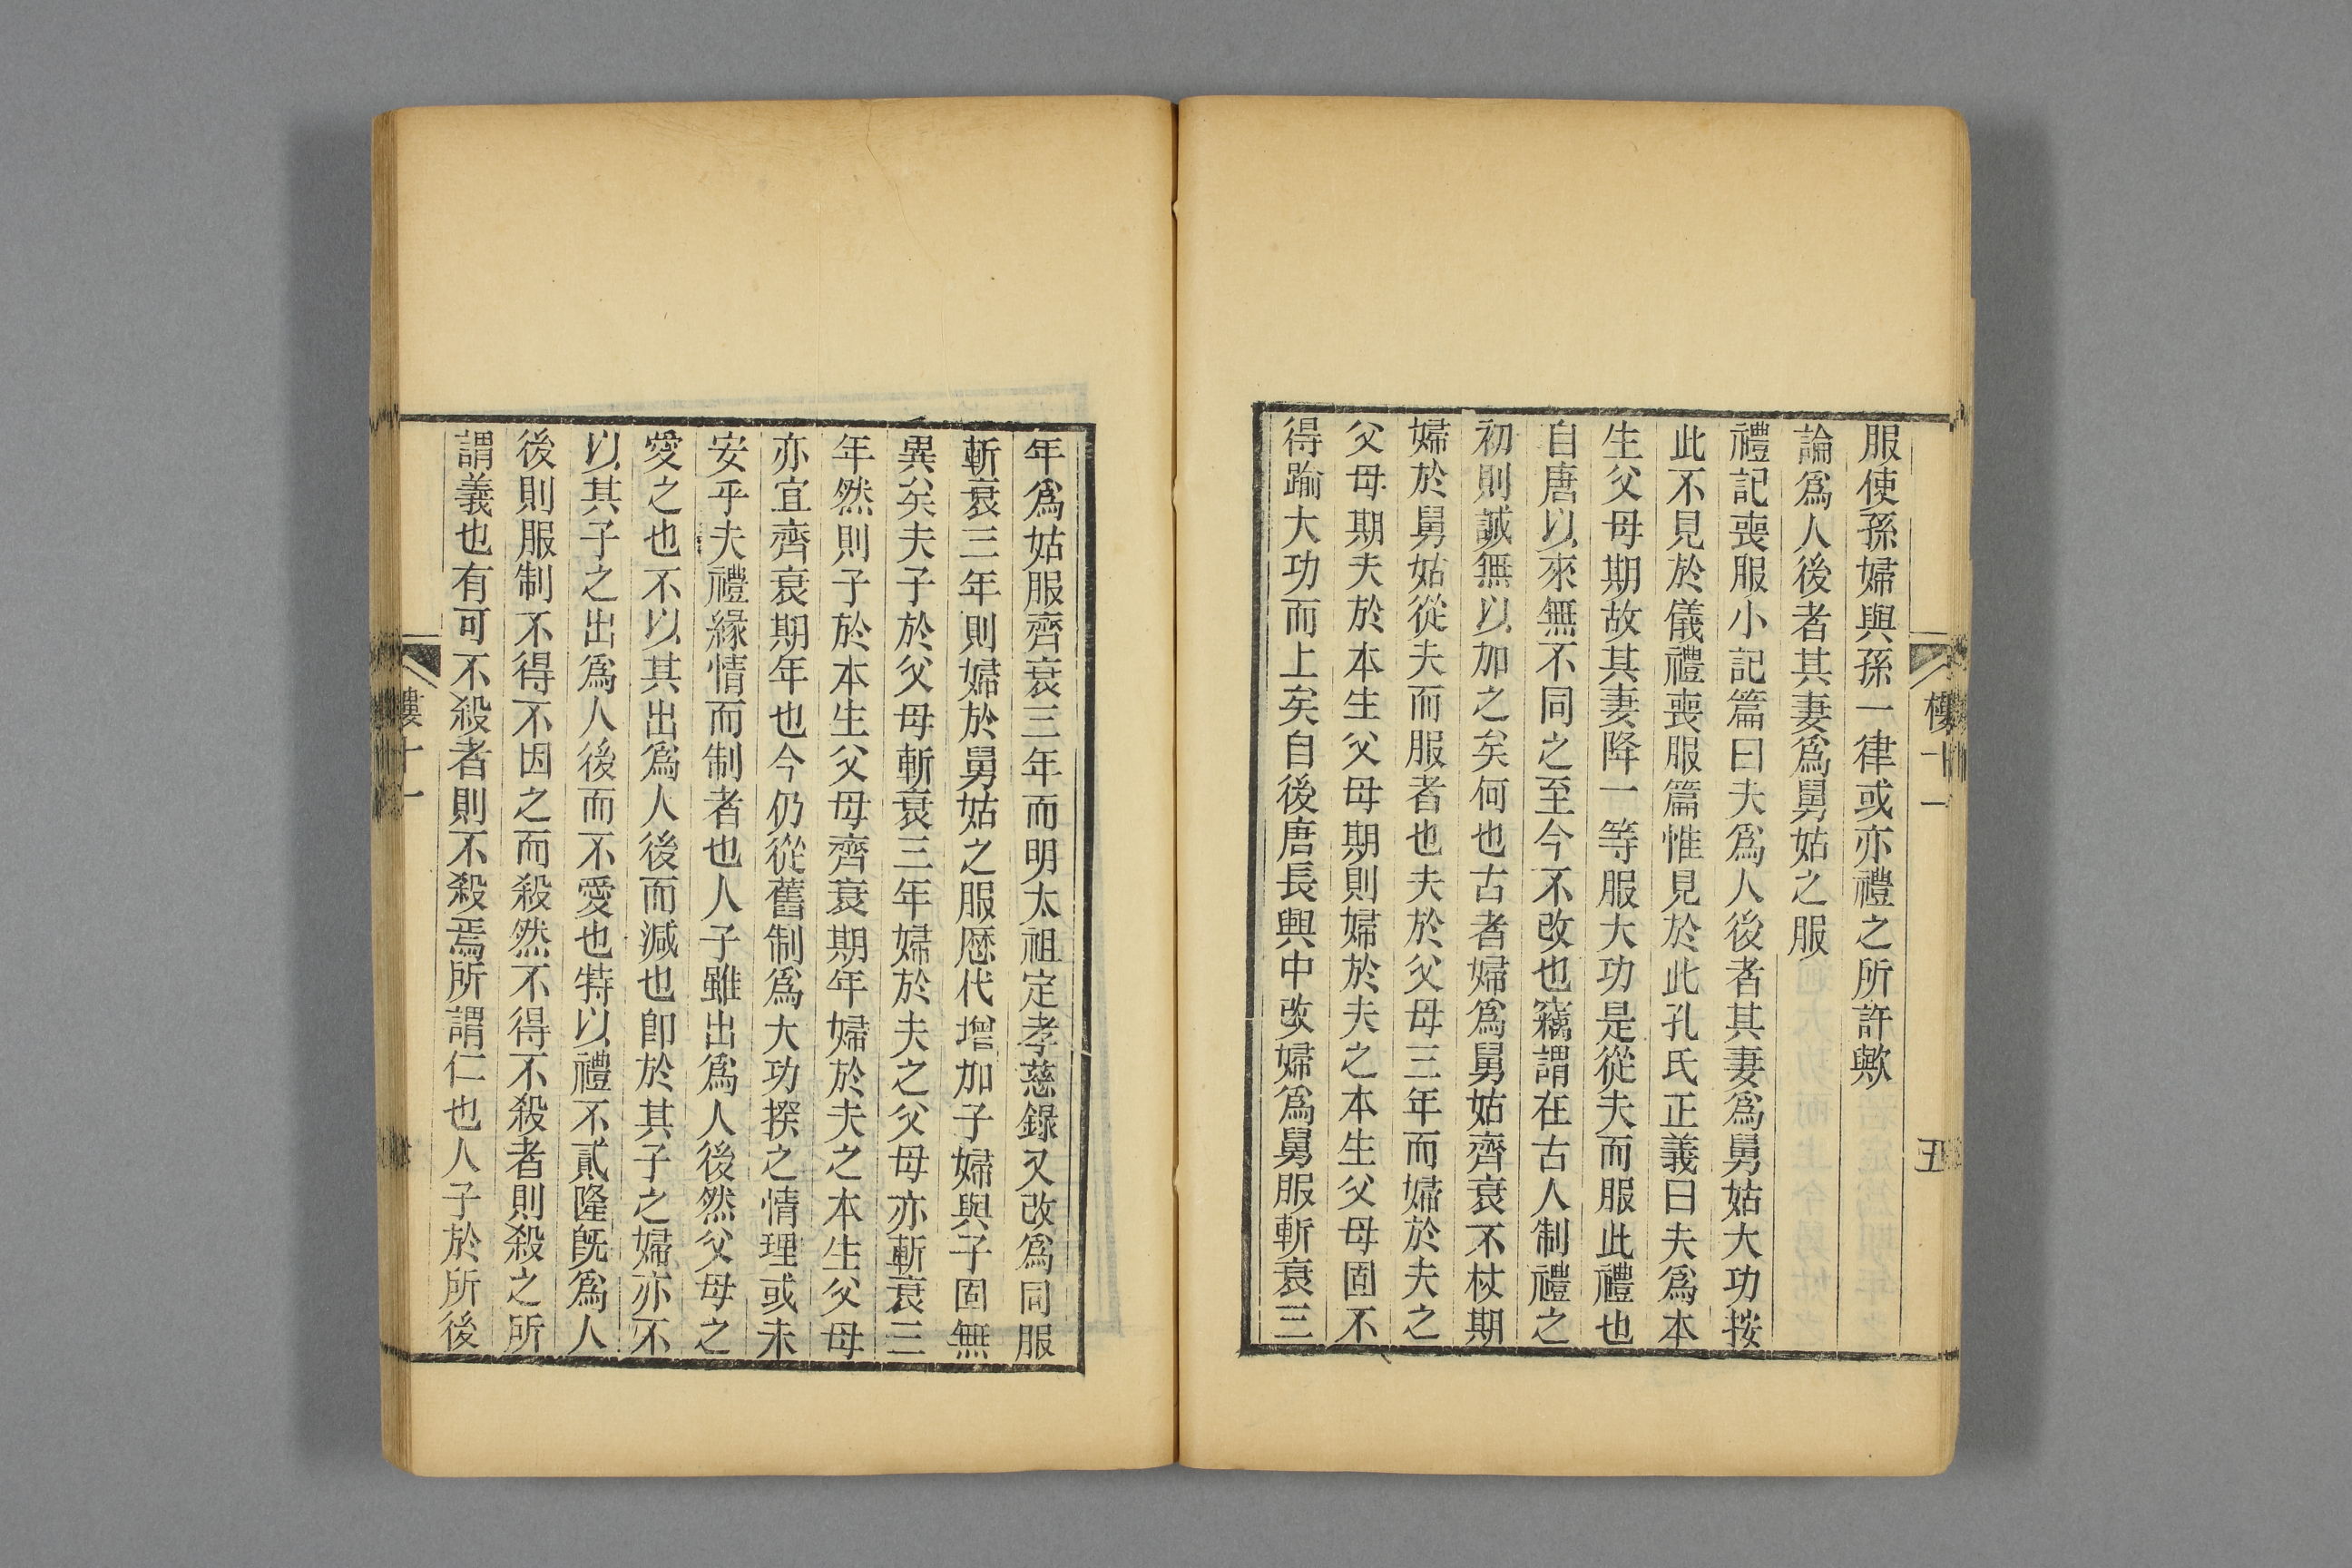 服使孫婦與孫一律或亦禮之所許歟
論爲人後者其妻爲舅姑之服
禮記喪服小記篇曰夫爲人後者其妻爲舅姑大功按
此不見於儀禮喪服篇惟見於此孔氏正義曰夫爲本
生父母期故其妻降一等服大功是從夫而服此禮也
自唐以來無不同之至今不改也竊謂在古人制禮之
初則誠無以加之矣何也古者婦爲舅姑齊衰不杖期
婦於舅姑從夫而服者也夫於父母三年而婦於夫之
父母期夫於本生父母期則婦於夫之本生父母固不
得踰大功而上矣自後唐長興中改婦爲舅服斬衰三
年爲姑服齊衰三年而明太祖定孝慈錄又改爲同服
斬衰三年則婦於舅姑之服歷代增加子婦與子固無
異矣夫子於父母斬衰三年婦於夫之父母亦斬衰三
年然則子於本生父母齊衰期年婦於夫之本生父母
亦宜齊衰期年也今仍從舊制爲大功揆之情理或未
安乎夫禮緣情而制者也人子雖出爲人後然父母之
愛之也不以其出爲人後而減也卽於其子之婦亦不
以其子之出爲人後而不愛也特以禮不貳隆旣爲人
後則服制不得不因之而殺然不得不殺者則殺之所
謂義也有可不殺者則不殺焉所謂仁也人子於所後
樓十一
五
樓十一